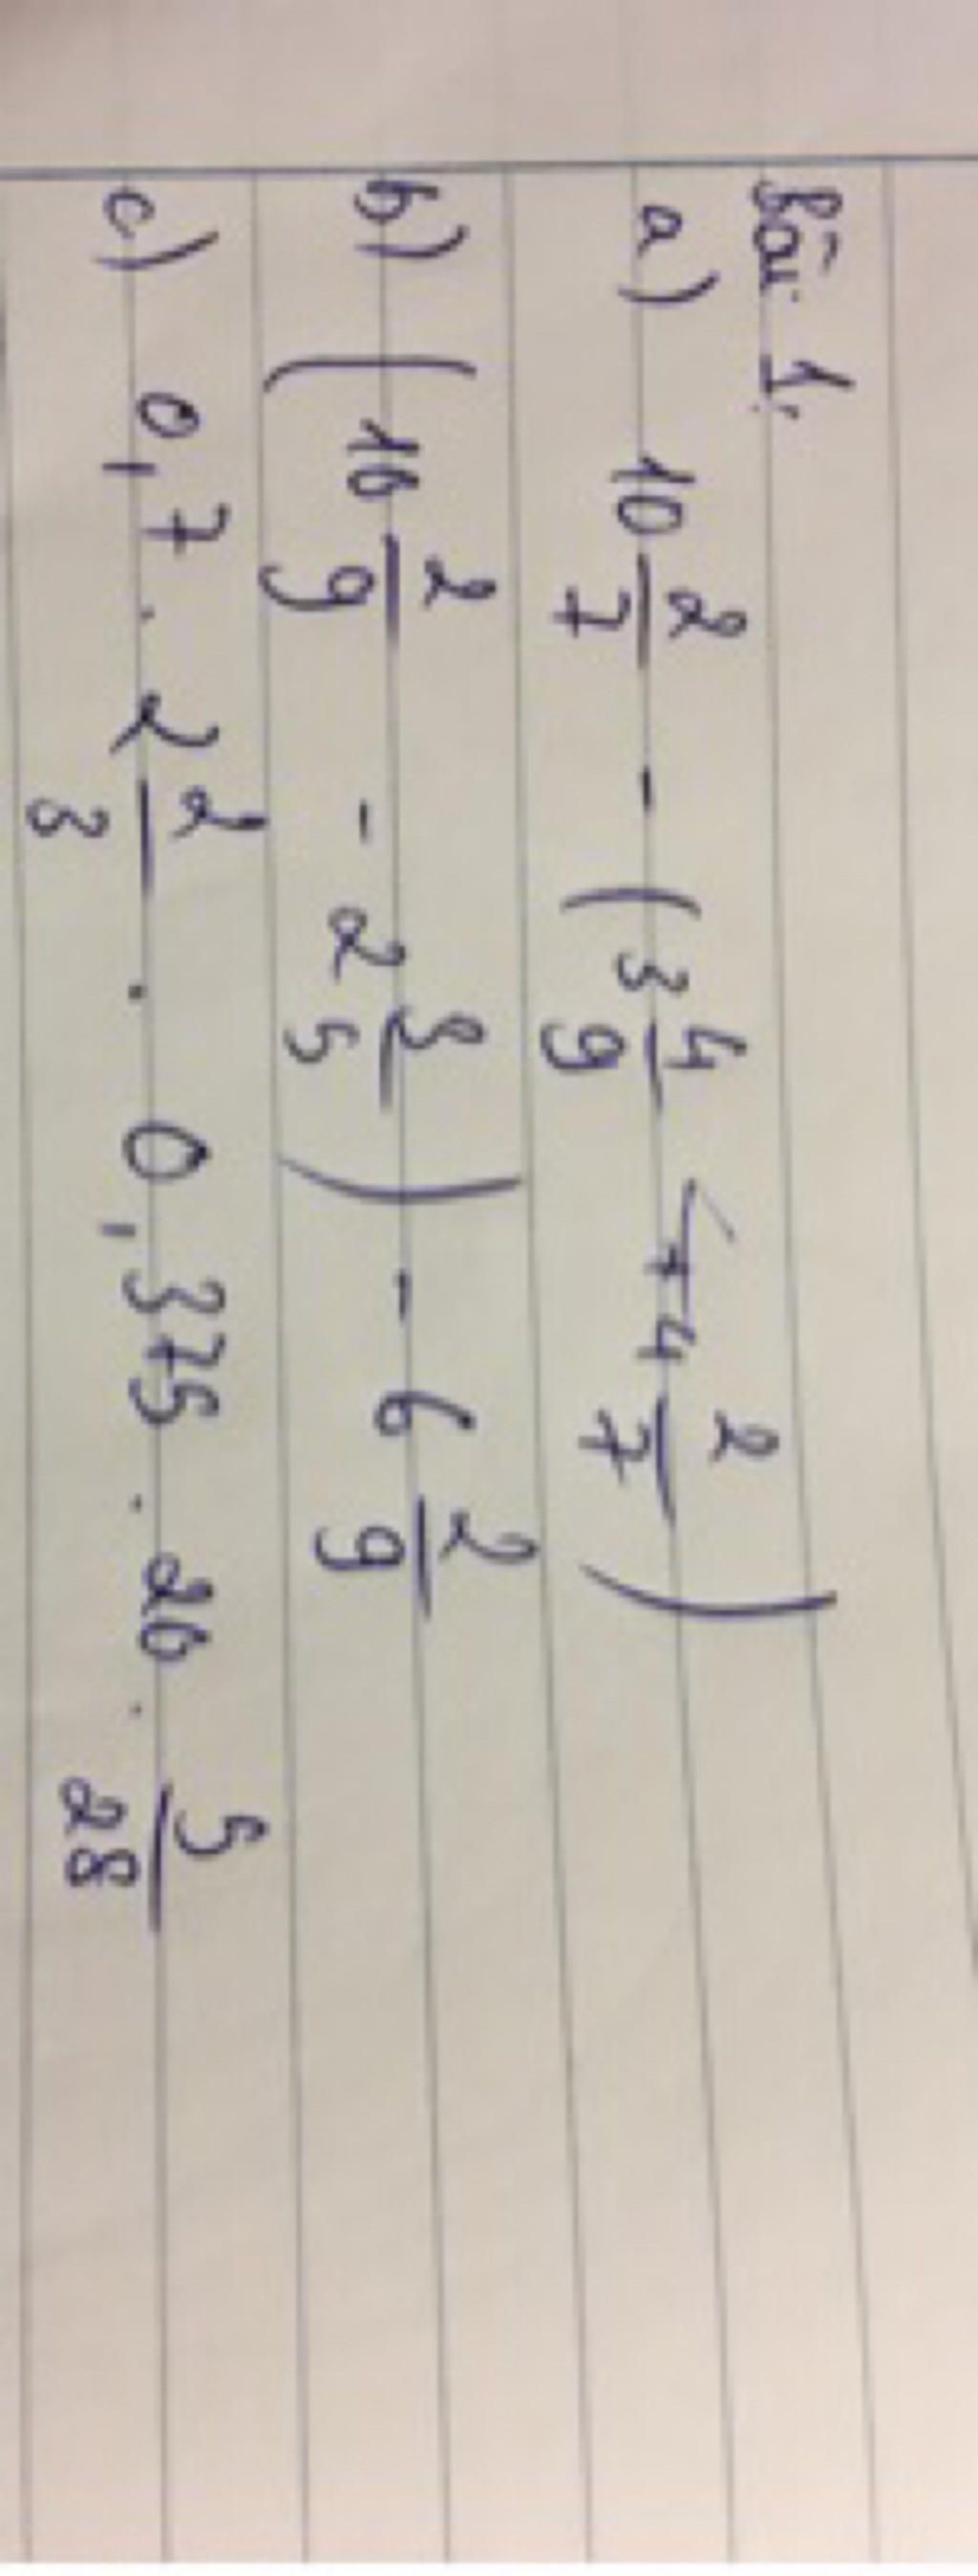 Bài 1.
a) 10 2/7 - (3 4/9 + 4 2/7)
b) (10 2/9 - 2 3/5) - 6 2/9
c) 0,7 . 2 2/3 . 0,375 . 20 . 5/28